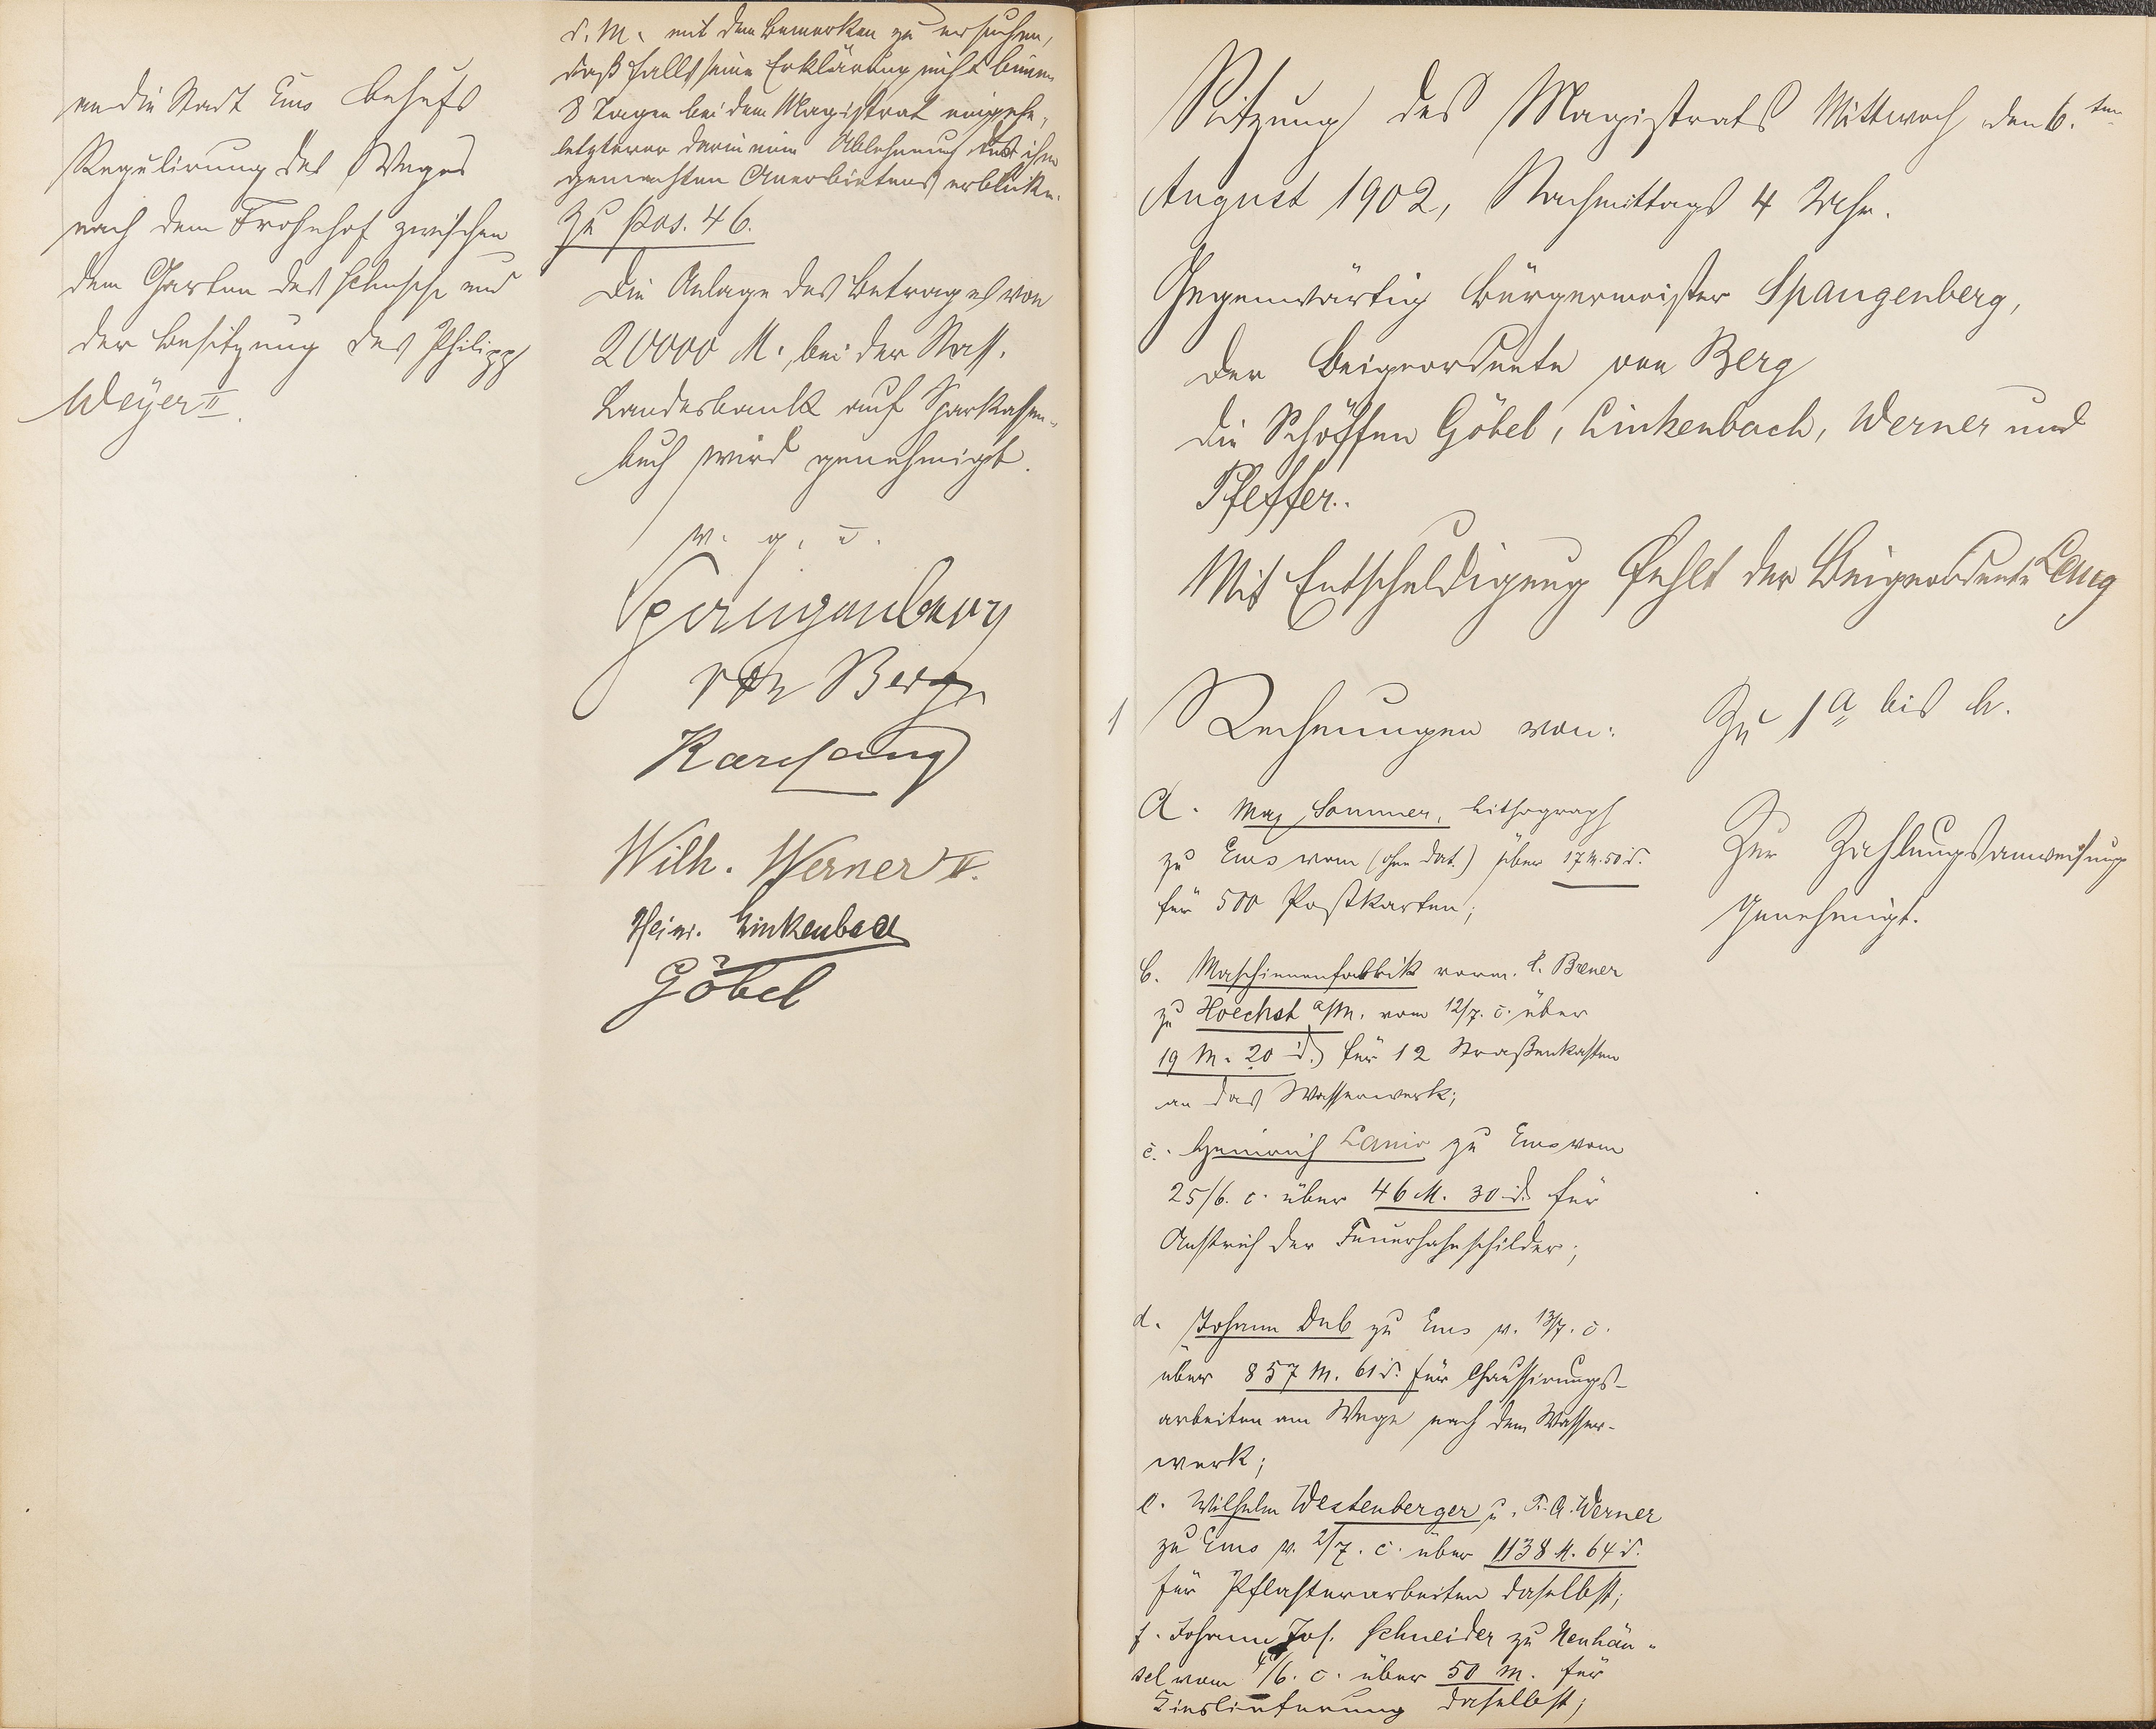 an die Stadt Ems behufs
Regulirung des Weges
nach dem Frohnhof zwischen
dem Garten des und
der Besitzung des Philipp
Weyer II.
d. M. mit dem Bemerken zu ersuchen,
daß falls seine Erklärung nicht binnen
8 Tagen bei dem Magistrat eingehe,
letzterer darin eine Ablehnung des ihm
gemachten Anerbietens erblicke.
Zu Pos. 46.
Die Anlage des Betrages von
20000 M. bei der Nass.
Landesbank auf Sparkassen-
buch wird genehmigt.
v. g. u.
Spangenberg
von Berg
Karl Lang
Wilh. Werner II.
Heinr. Linkenbach
Göbel
Sitzung des Magistrats Mittwoch den 6.ten
August 1902, Nachmittags 4 Uhr.
Gegenwärtig Bürgermeister Spangenberg,
der Beigeordnete von Berg
die Schöffen Göbel, Linkenbach, Werner und
Pfeffer.
Mit Entschuldigung fehlt der Beigeordnete Lang
1 Rechnungen von:
Zu 1 a bis h.
a. Max Sommer, Lithograph
zu Ems vom (ohne Dat.) über 17 M. 50 d.
für 500 Postkarten;
Zur Zahlungsanweisung
Genehmigt.
b. Maschinenfabrik vorm. Breuer
zu Hoechst a/M. vom 12/7. c. über
19 M. 20 d. für 12 Straßenkasten
an das Wasserwerk;
c. Heinrich Lanio zu Ems vom
25/6. c. über 46 M. 30 d. für
Anstrich der Feuerhahnschilder;
d. Johann Dub zu Ems v. 13/7. c.
über 857 M. 61 d. für Chaussirungs-
arbeiten am Wege nach dem Wasser-
werk;
e. Wilhelm Westenberger u. F. A. Werner
zu Ems v. 2/7. c. über 1138 M. 64 d.
für Pflasterarbeiten daselbst;
f. Johann Jos. Schneider zu Neuhäu-
sel vom /6. c. über 50 M. für
Kieslieferung daselbst;